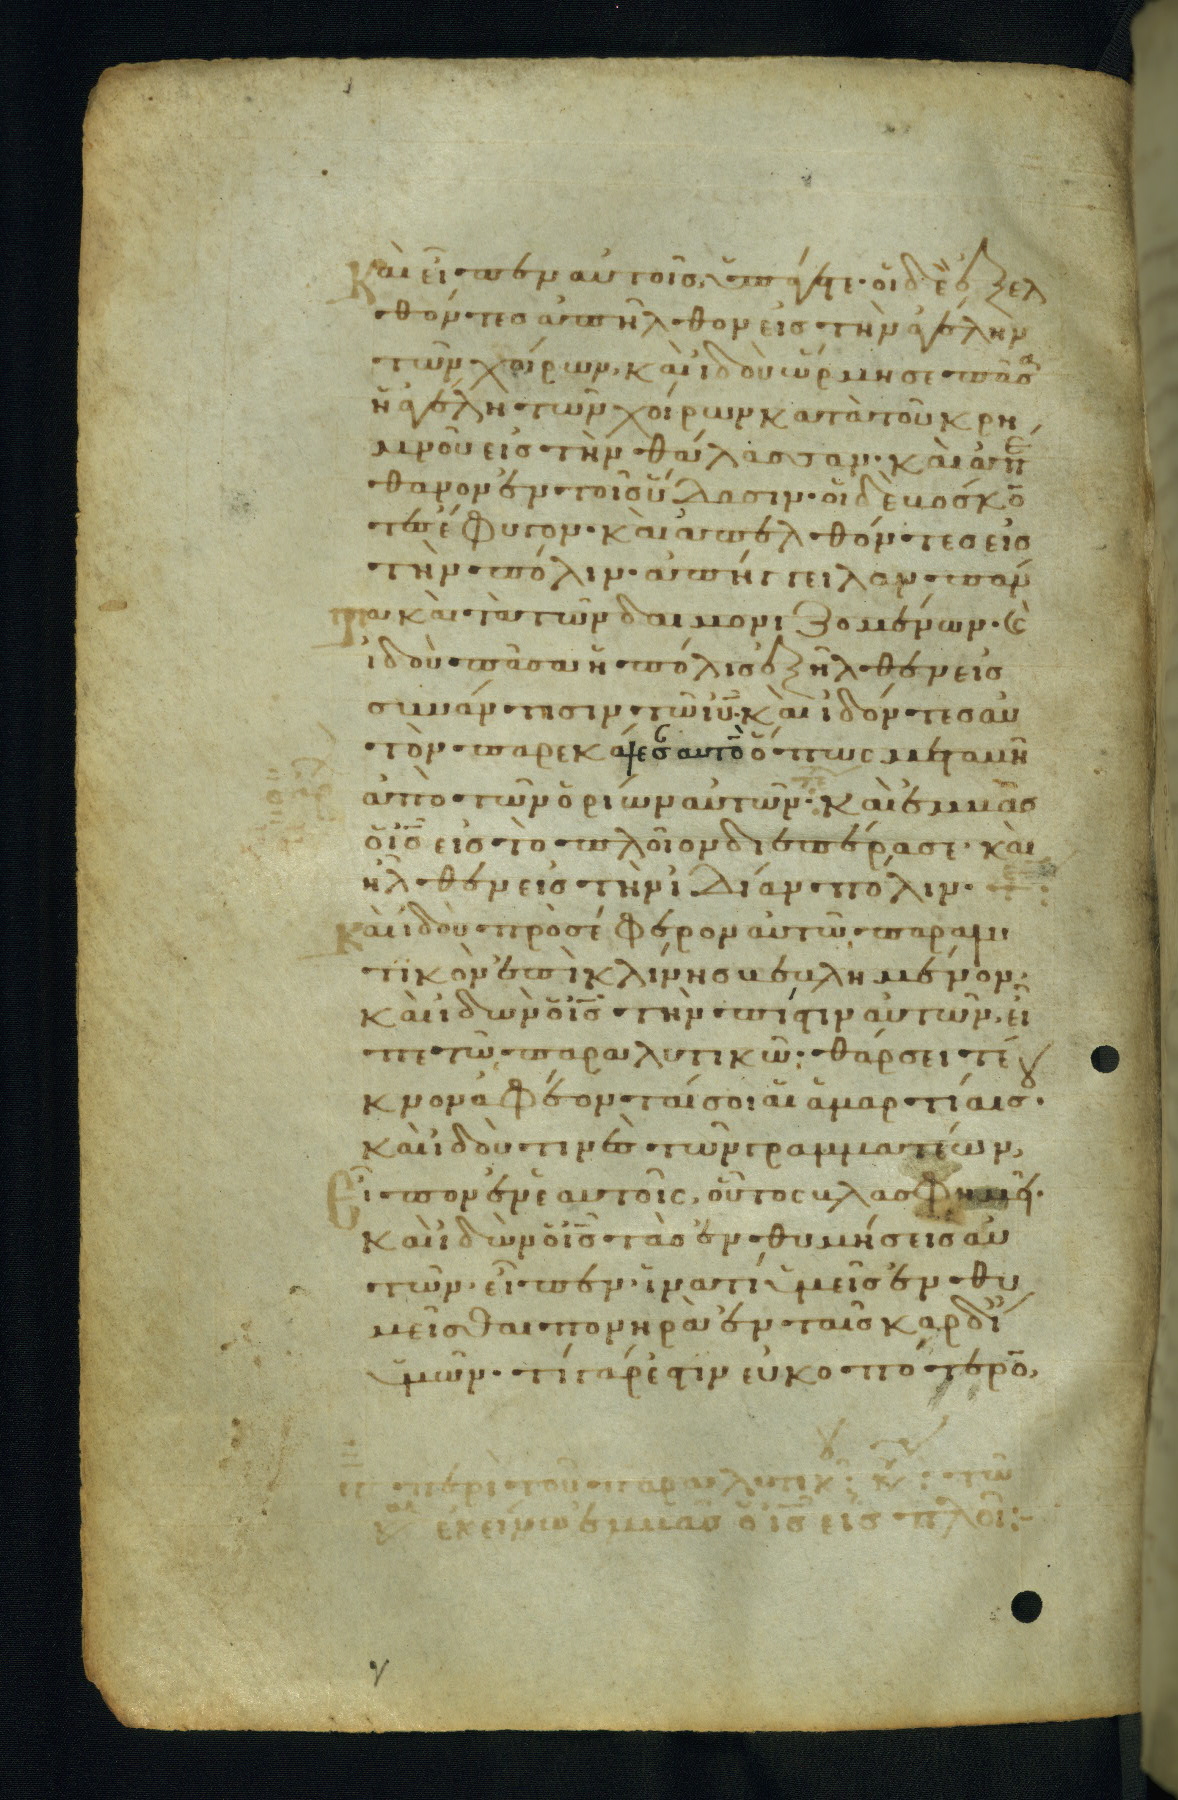 Καὶ εἶπεν αὐτοῖς, ὑπάγετε· οἱ δὲ ἐξελ
θόντες ἀπῆλθον εἰς τὴν ἀγέλην
τῶν χοίρων, καὶ ἰδοὺ ὥρμησε πᾶσα
ἡ ἀγέλη τῶν χοίρων κατὰ τοῦ κρη
μνοῦ εἰς τὴν θάλασσαν· καὶ ἀπέ
θανον ἐν τοῖς ὕδασιν· οἱ δὲ βόσκο̅
τες ἔφυγον· καὶ ἀπελθόντες εἰς
τὴν πόλιν· ἀπήγγειλαν πάν
τα καὶ τὰ τῶν δαιμονιζομένων· καὶ
ἰδοὺ πᾶσα ἡ πόλις ἐξῆλθεν εἰς
συνάντησιν τῶ ἰ̅υ̅· καὶ ἰδόντες αὐ
τὸν παρεκάλεσαν αὐτὸ̅ ὅπως μεταβῆ
ἀπὸ τῶν ὁρίων αὐτῶν· καὶ ἐμβὰς
ὁ ι̅ς̅ εἰς τὸ πλοῖον διεπέρασε· καὶ
ἦλθεν εἰς τὴν ἰδίαν πόλιν·
Καὶ ἰδοὺ προσέφερον αὐτῶ παραλυ
τικὸν ἐπὶ κλίνης βεβλημένον·
καὶ ἰδὼν ὁ ι̅ς̅ τὴν πίστιν αὐτῶν, εἶ
πε τῶ παραλυτικῶ· θάρσει τέ
κνον ἀφέονταί σοι αἱ ἁμαρτίαι σου·
καὶ ἰδού τινες τῶν γραμματέων,
Εἶπον ἐν ἑαυτοῖς, οὗτος βλασφημεῖ·
καὶ ἰδὼν ὁ ι̅ς̅ τὰς ἐνθυμήσεις αὐ
τῶν· εἶπεν· ἱνατί ὑμεῖς ἐνθυ
μεῖσθαι πονηρὰ ἐν ταῖς καρδί
ὑμῶν· τί γάρ ἐστιν εὐκοπότερο̅,
περὶ τοῦ παραλυτικοῦ: τῶ
ἐκείνω ἐμβὰς ὁ ι̅ς̅ εἰς πλοῖ: